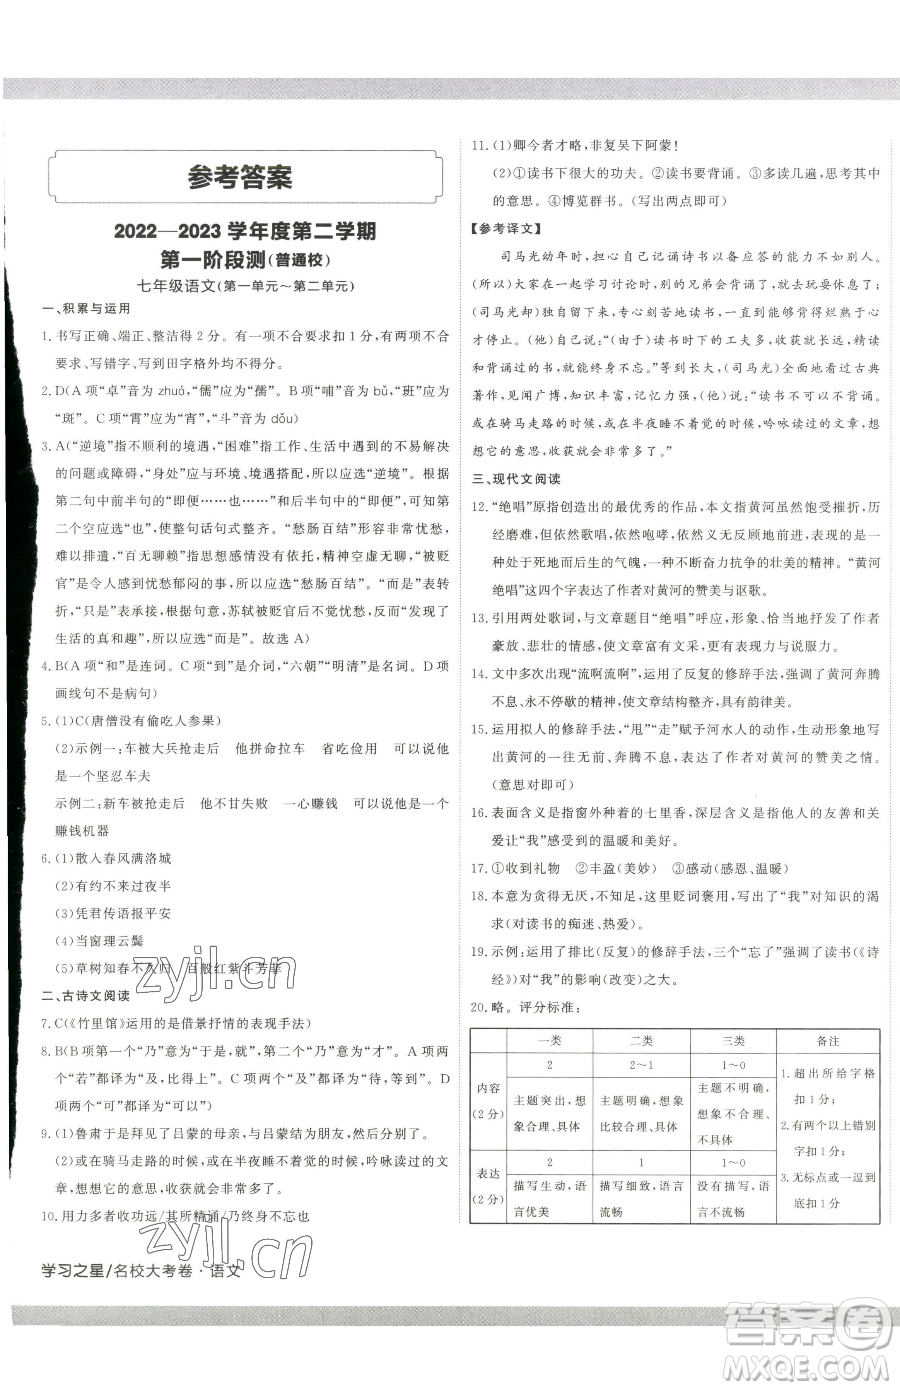 参考答案
2022—2023 学年度第二学期
第一阶段测(普通校)
七年级语文(第一单元～第二单元)
一、积累与运用
1. 书写正确、端正、整洁得 2 分。有一项不合要求扣 1 分,有两项不合
要求、写错字、写到田字格外均不得分。
2. D(A 项“卓”音为 zhuó,“儒”应为“孺”。B 项“哺”音为 bǔ,“班”应为
“斑”。C 项“霄”应为“宵”,“斗”音为 dǒu)
3. A(“逆境”指不顺利的境遇,“困难”指工作、生活中遇到的不易解决
的问题或障碍,“身处”应与环境、境遇搭配,所以应选“逆境”。根据
第二句中前半句的“即便……也……”和后半句中的“即便”,可知第
二个空应选“也”,使整句话句式整齐。“愁肠百结”形容非常忧愁,
难以排遣,“百无聊赖”指思想感情没有依托,精神空虚无聊,“被贬
官”是令人感到忧愁郁闷的事,所以应选“愁肠百结”。“而是”表转
折,“只是”表承接,根据句意,苏轼被贬官后不忧愁,反而“发现了
生活的真和趣”,所以应选“而是”。故选 A)
4. B(A 项“和”是连词。C 项“到”是介词,“六朝”“明清”是名词。D 项
画线句不是病句)
5. (1)C(唐僧没有偷吃人参果)
(2)示例一:车被大兵抢走后　他拼命拉车　省吃俭用　可以说他
是一个坚忍车夫
示例二:新车被抢走后　他不甘失败　一心赚钱　可以说他是一个
赚钱机器
6. (1)散入春风满洛城
(2)有约不来过夜半
(3)凭君传语报平安
(4)当窗理云鬓
(5)草树知春不久归　百般红紫斗芳菲
二、古诗文阅读
7. C(《竹里馆》运用的是借景抒情的表现手法)
8. B(B 项第一个“乃”意为“于是,就”,第二个“乃”意为“才”。A 项两
个“都”都译为“与,比”。C 项两个“及”都译为“待,等到”。D
项两个“可”都译为“可以”)
9. (1)鲁肃于是拜见了吕蒙的母亲,与吕蒙结为朋友,然后分别了。
(2)或在骑马走路的时候,或在半夜睡不着觉的时候,吟咏读过的文
章,想想它的意思,收获就会非常多了。
10. 用力多者收功远/其所精诵/乃终身不忘也
学习之星/名校大考卷·语文
11. (1)卿今者才略,非复吴下阿蒙!
(2)①读书下很大的功夫。②读书要背诵。③多读几遍,思考其中
的意思。④博览群书。(写出两点即可)
【参考译文】
司马光幼年时,担心自己记诵诗书以备应答的能力不如别人,
(所以)大家在一起学习讨论时,别的兄弟会背诵了,就去玩耍休息;
(司马光却)独自留下来,专心刻苦地读书,一直到能够背得烂熟于心
才停止。(他)自言:“(由于)读书时下的工夫多,收获就长远,他精读
和背诵过的书,就能终身不忘。”(等长大后,司马光)遍览古代典
籍,见闻广博,知识丰富,记忆力强,(他)曾说:“读书不可以不背诵,
或在骑马走路的时候,或在半夜睡不着觉的时候,吟咏读过的文章,想
想它的意思,收获就会非常多了。”
三、现代文阅读
12. “绝唱”原指创造出的最优秀的作品,本文指黄河虽然饱受摧折,历
经磨难,但依然歌唱,依然咆哮,依然义无反顾地前行,表现了黄河
处于死地而后生的气魄,一种不断奋力抗争的壮美的精神。“黄河
绝唱”这四个字表达了对黄河的赞美与讴歌。
13. 引用两处歌词,与文章题目“绝唱”呼应,形象、恰当地抒发了作者
豪放、悲壮的情感,使文章富有文采,更有表现力与说服力。
14. 文中多次出现“流啊流啊”,运用了反复的修辞手法,强调了黄河奔腾
不息、永不停歇的精神,使文章结构整齐,具有韵律美。
15. 运用拟人的修辞手法,“甩”“走”赋予河水人的动作,生动形象地写
出黄河的一往无前、奔腾不息,表达了作者对黄河的赞美之情。
(意思对即可)
16. 表面含义是指窗外种着的七里香,深层含义是指他人的友善和关
爱让“我”感受到的温暖和美好。
17. ①收到礼物　②丰盈(美妙)　③感动(感恩、温暖)
18. 本意为贪得无厌,不知满足,这里贬词褒用,写出了“我”对知识的渴
求(对读书的痴迷、热爱)。
19. 示例:运用了排比(反复)的修辞手法,三个“忘”强调了读书(《诗
经》)对“我”的影响(改变)之大。
20. 略。评分标准:
一类　二类　三类　备注
内容(2 分)
2　2～1　1～0
主题突出,想象合理、具体
主题明确,想象比较合理、具体
主题不明确,想象不合理、不具体
表达(2 分)
2　1　1～0
描写生动,语言优美
描写细致,语言流畅
没有描写,语言不流畅
1. 超出所给字格扣 1 分;
2. 有两个以上错别字扣 1 分;
3. 无标点或一逗到底扣 1 分
zyjl.cn
zyjl.cn
答案圈
MXQE.COM